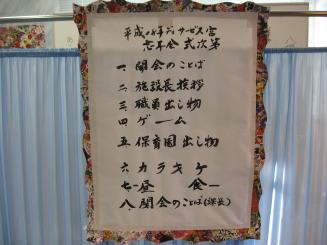 平成18年デイサービス宮
忘年会 式次第
一、開会のことば
二、施設長挨拶
三、職員出し物
四、ゲーム
五、保育園出し物
六、カラオケ
七、昼食
八、閉会のことば(課長)